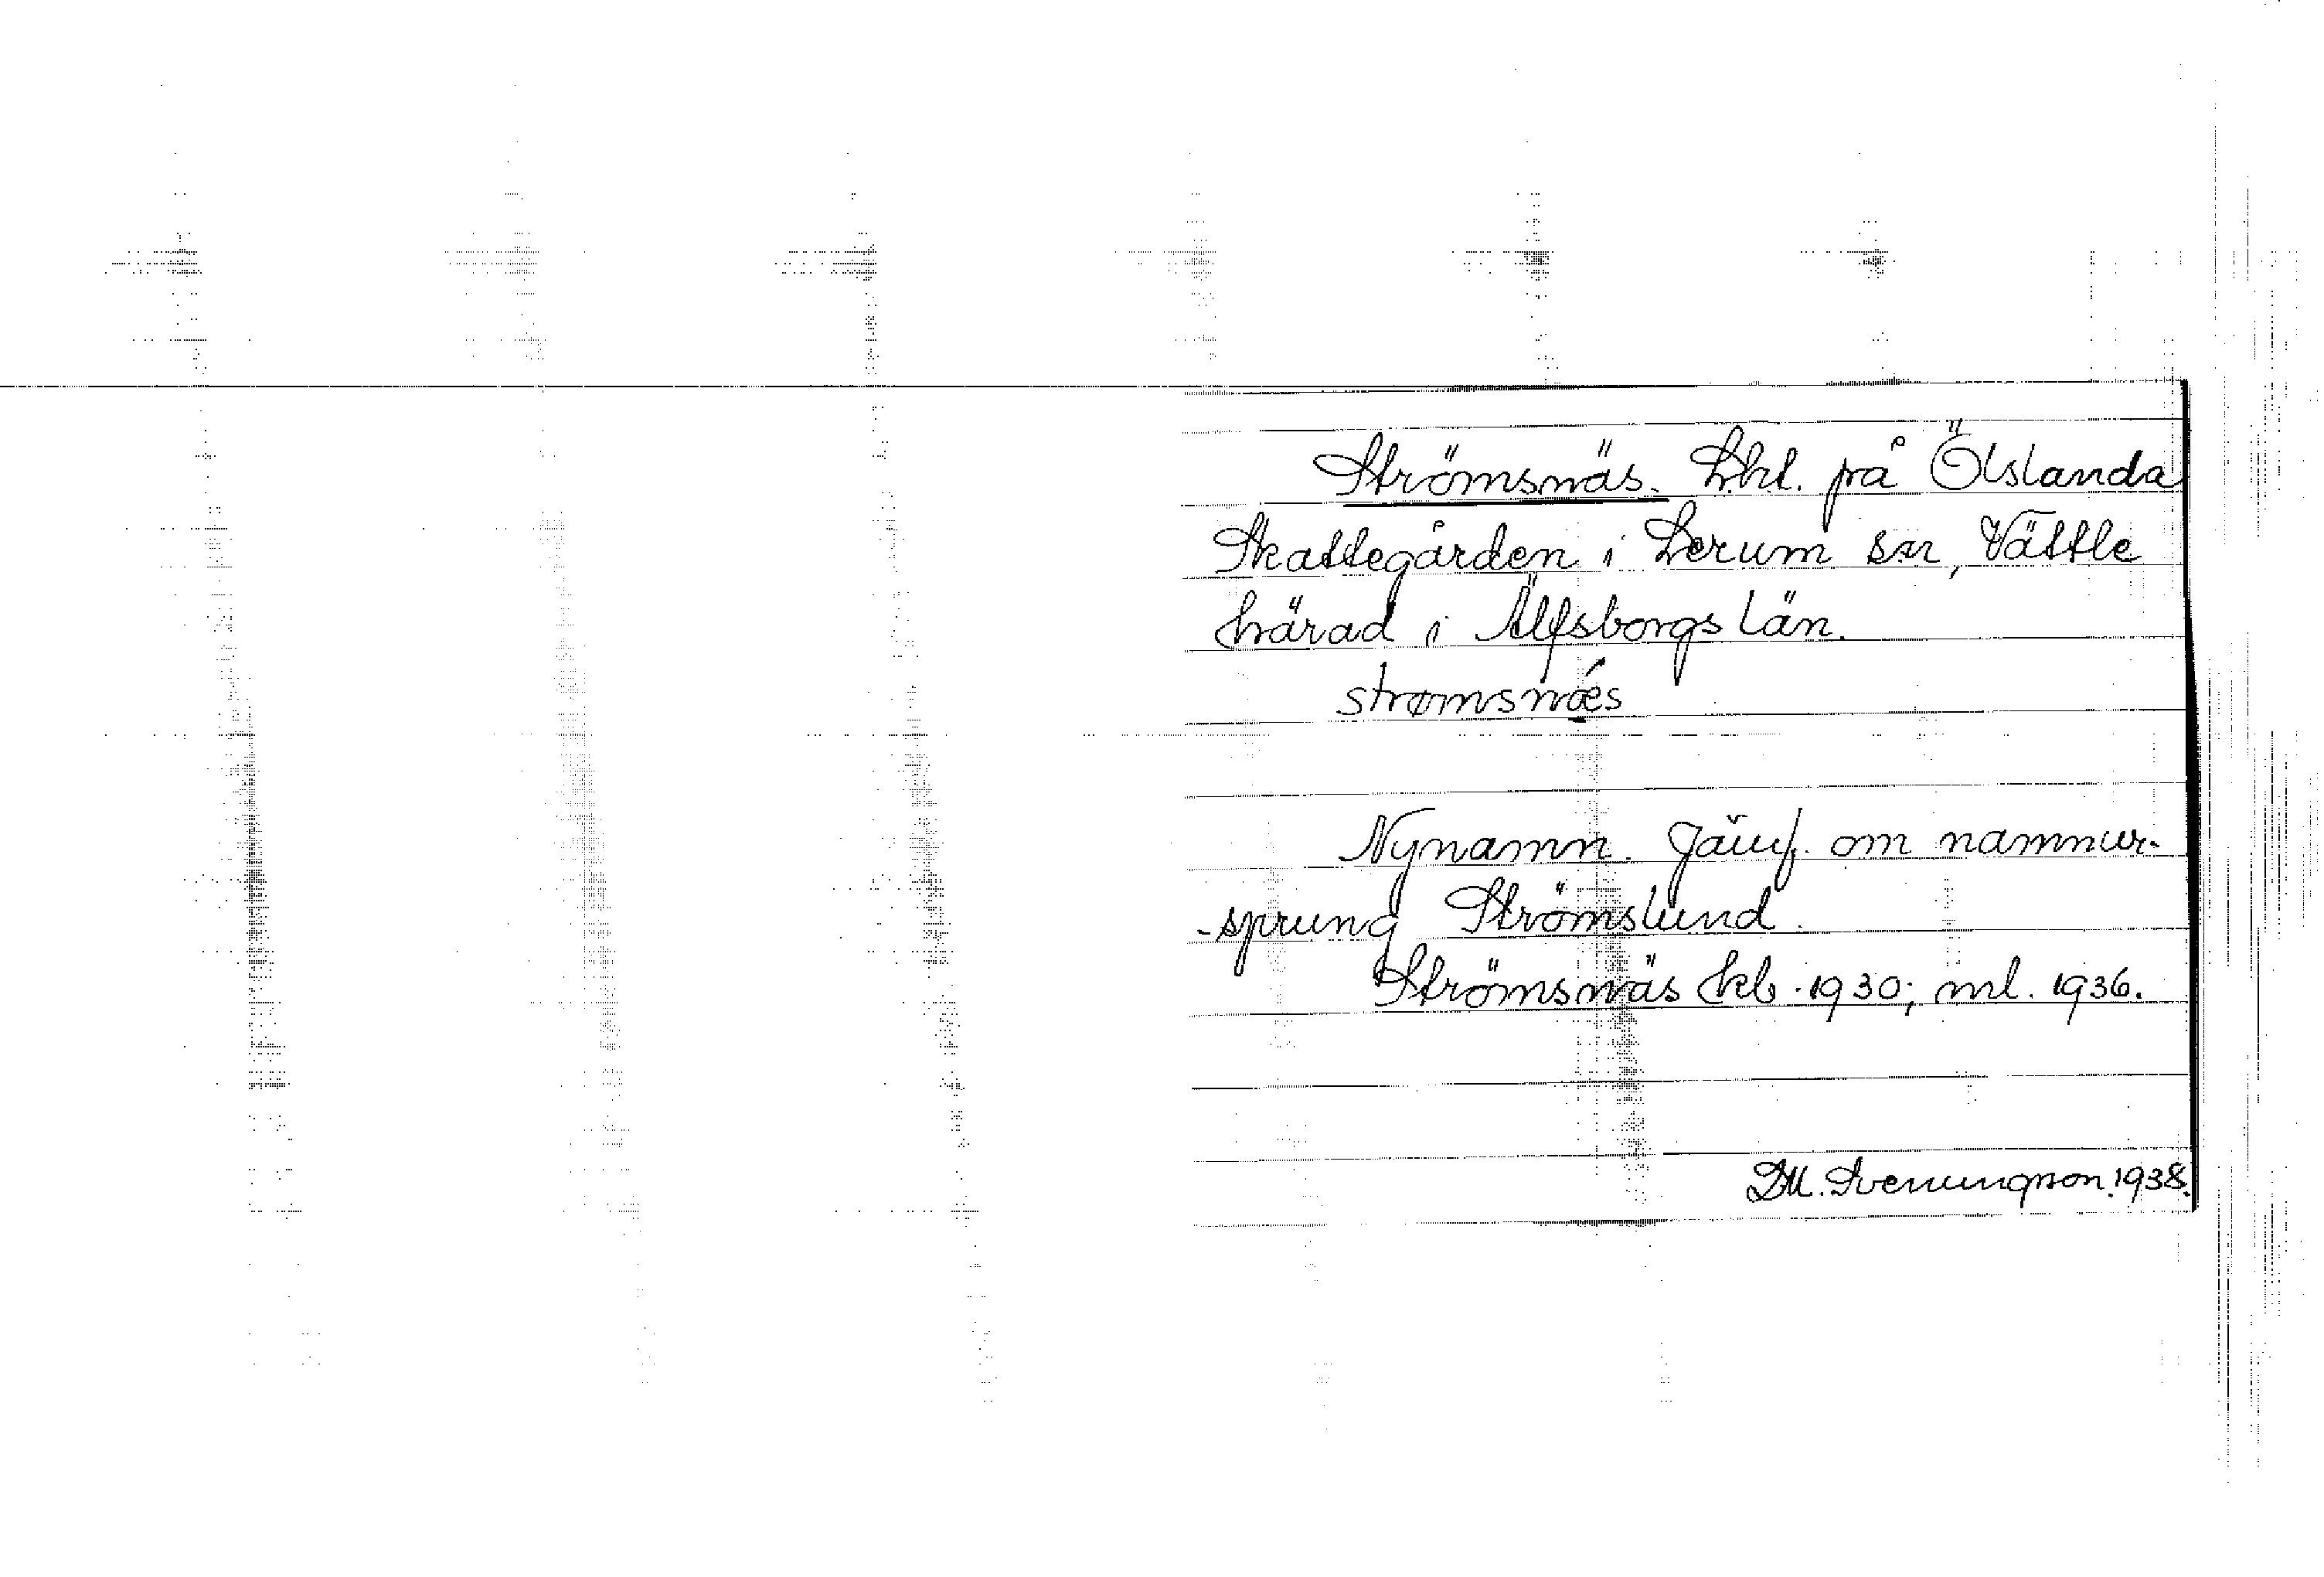 Strömsnäs. Lht. på Ölslanda
Skattegården i Lerum sn, Vättle
härad i Älfsborgs län.
strømsnǽs
Nynamn. Jämf. om namnur-
-sprung Strömslund.
Strömsnäs hkb. 1930; ml. 1936.
D.M. Svenungson. 1938.